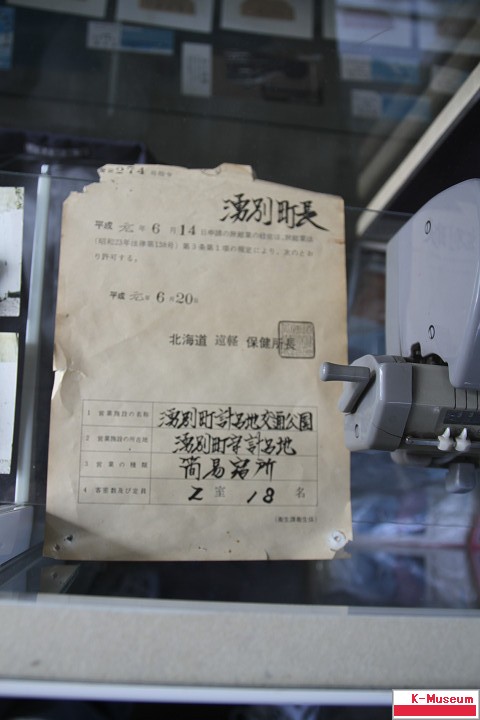 274
湧別町長
平成 元 年 6 月 14 日申請の旅館業の経営は、旅館業法
(昭和23年法律第138号)第3条第1項の規定により、次のとお
り許可する。
平成 元 年 6 月 20 日
北海道 遠軽 保健所長
1 営業施設の名称 湧別町計呂地交通公園
2 営業施設の所在地 湧別町字計呂地
3 営業の種類 簡易宿所
4 客室数及び定員 2 室 18 名
K-Museum